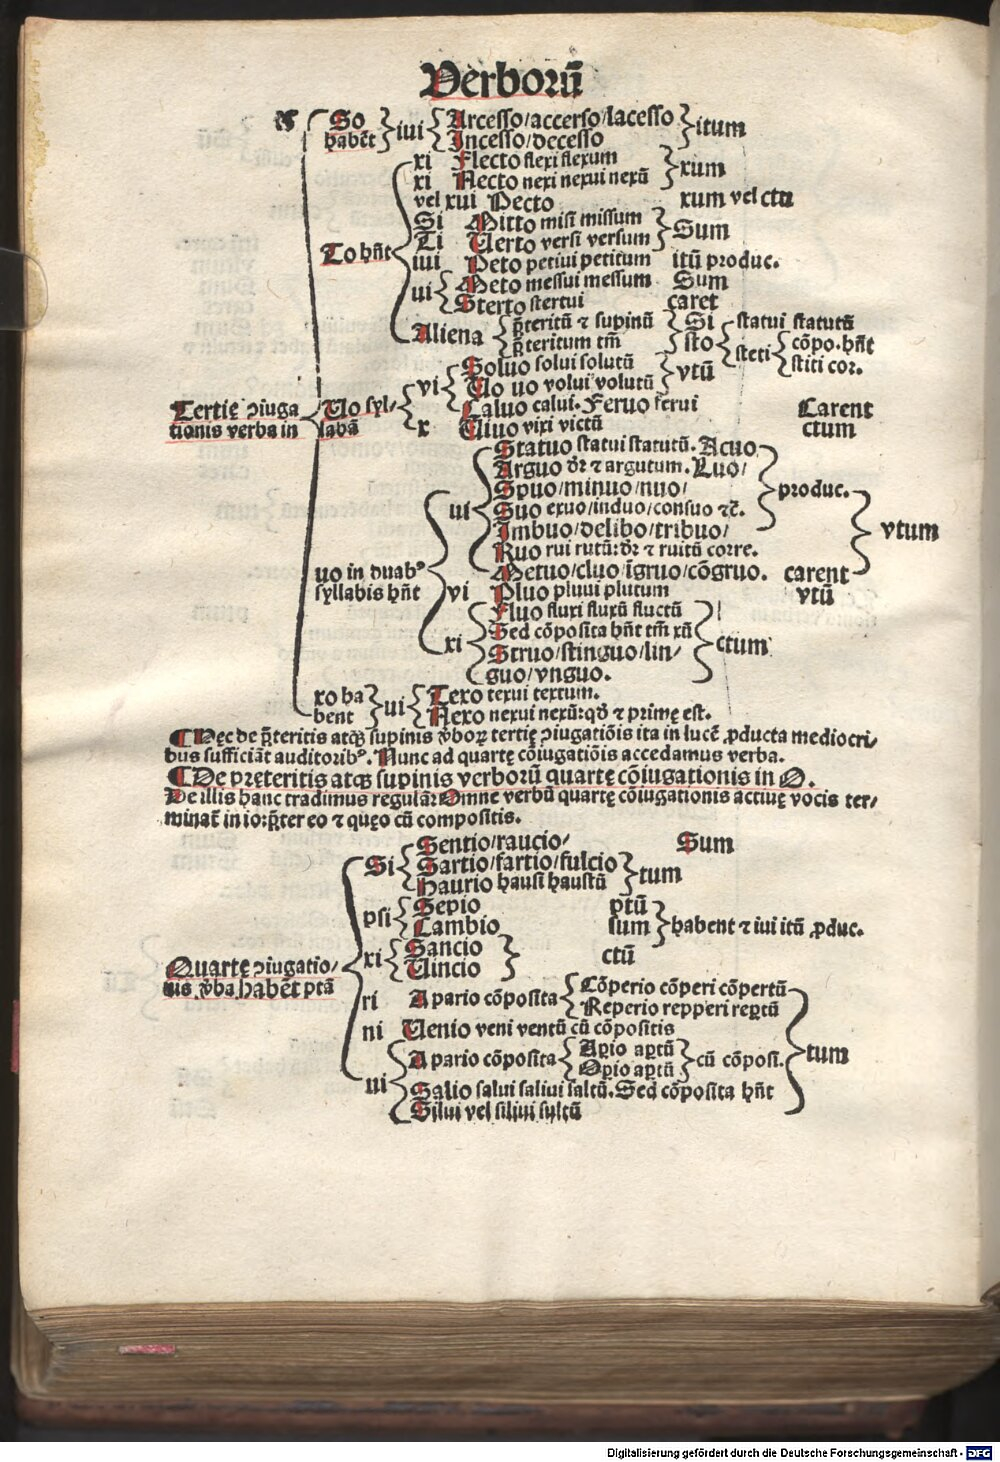 Verborũ
So
habẽt
iui
Arcesso/accerso/lacesso
Incesso/occesso
itum
xi Flecto flexi flexum
xi Necto nexi nexui nexũ
xum
vel xui Pecto xum vel ctũ
Si Mitto misi missum
Ti Uerto versi versum
Sum
To hñt
iui Peto petiui petitum itũ produc.
ui
Meto messui messum Sum
Sterto stertui caret
Aliena
p̃teritũ ⁊ supinũ
p̃teritum tm̃
Si
sto
statui statutũ
steti
cõpo. hñt
stiti cor.
vi
Soluo solui solutũ
Uo uo volui volutũ
vtũ
Tertię ↄiuga
tionis verba in
Uo syl-
labã
Caluo calui. Feruo ferui Carent
x Uiuo vixi victũ ctum
ui
Statuo statui statutũ. Acuo
Arguo ⁊ argutum. Luo/
Spuo/minuo/nuo/
Suo exuo/induo/consuo ⁊c̃.
Imbuo/delibo/tribuo/
Ruo rui rutũ: ⁊ ruitũ corre.
produc.
vtum
uo in duab⁹
syllabis hñt
Metuo/cluo/ĩgruo/cõgruo. carent
vi Pluo pluui plutum vtũ
xi
Fluo fluxi fluxũ fluctũ
Sed cõposita hñt tm̃ xũ
Struo/stinguo/lin/
guo/vnguo.
ctum
xo ha
bent
ui
Texo texui textum.
Nexo nexui nexũ: qd̃ ⁊ primę est.
¶ Hęc de p̃teritis atqꝫ supinis ꝟboꝝ tertię ↄiugatiõis ita in lucẽ ꝓducta mediocri/
bus sufficiãt auditorib⁹. Nunc ad quartę cõiugatiõis accedamus verba.
¶ De pręteritis atqꝫ supinis verborũ quartę cõiugationis in O.
De illis hanc tradimus regulã: Omne verbũ quartę cõiugationis actiuę vocis ter/
minat̃ in io: p̃ter eo ⁊ quęo cũ compositis.
Si
Sentio/raucio/ Sum
Sartio/fartio/fulcio
Haurio hausi haustũ
tum
psi
Sepio ptũ
Lambio sum
habent ⁊ iui itũ ꝓduc.
xi
Sancio
Uincio
ctũ
Quartę ↄiugatio/
nis ꝟba habẽt ptã
ri A pario cõposita
Cõperio cõperi cõpertũ
Reperio repperi reꝑtũ
ni Uenio veni ventũ cũ cõpositis
ui
A pario cõposita
Aꝑio aꝑtũ
Oꝑio aꝑtũ
cũ cõposi.
Salio salui saliui saltũ. Sed cõposita hñt
Silui vel siliui sultũ
tum
Digitalisierung gefördert durch die Deutsche Forschungsgemeinschaft - DFG